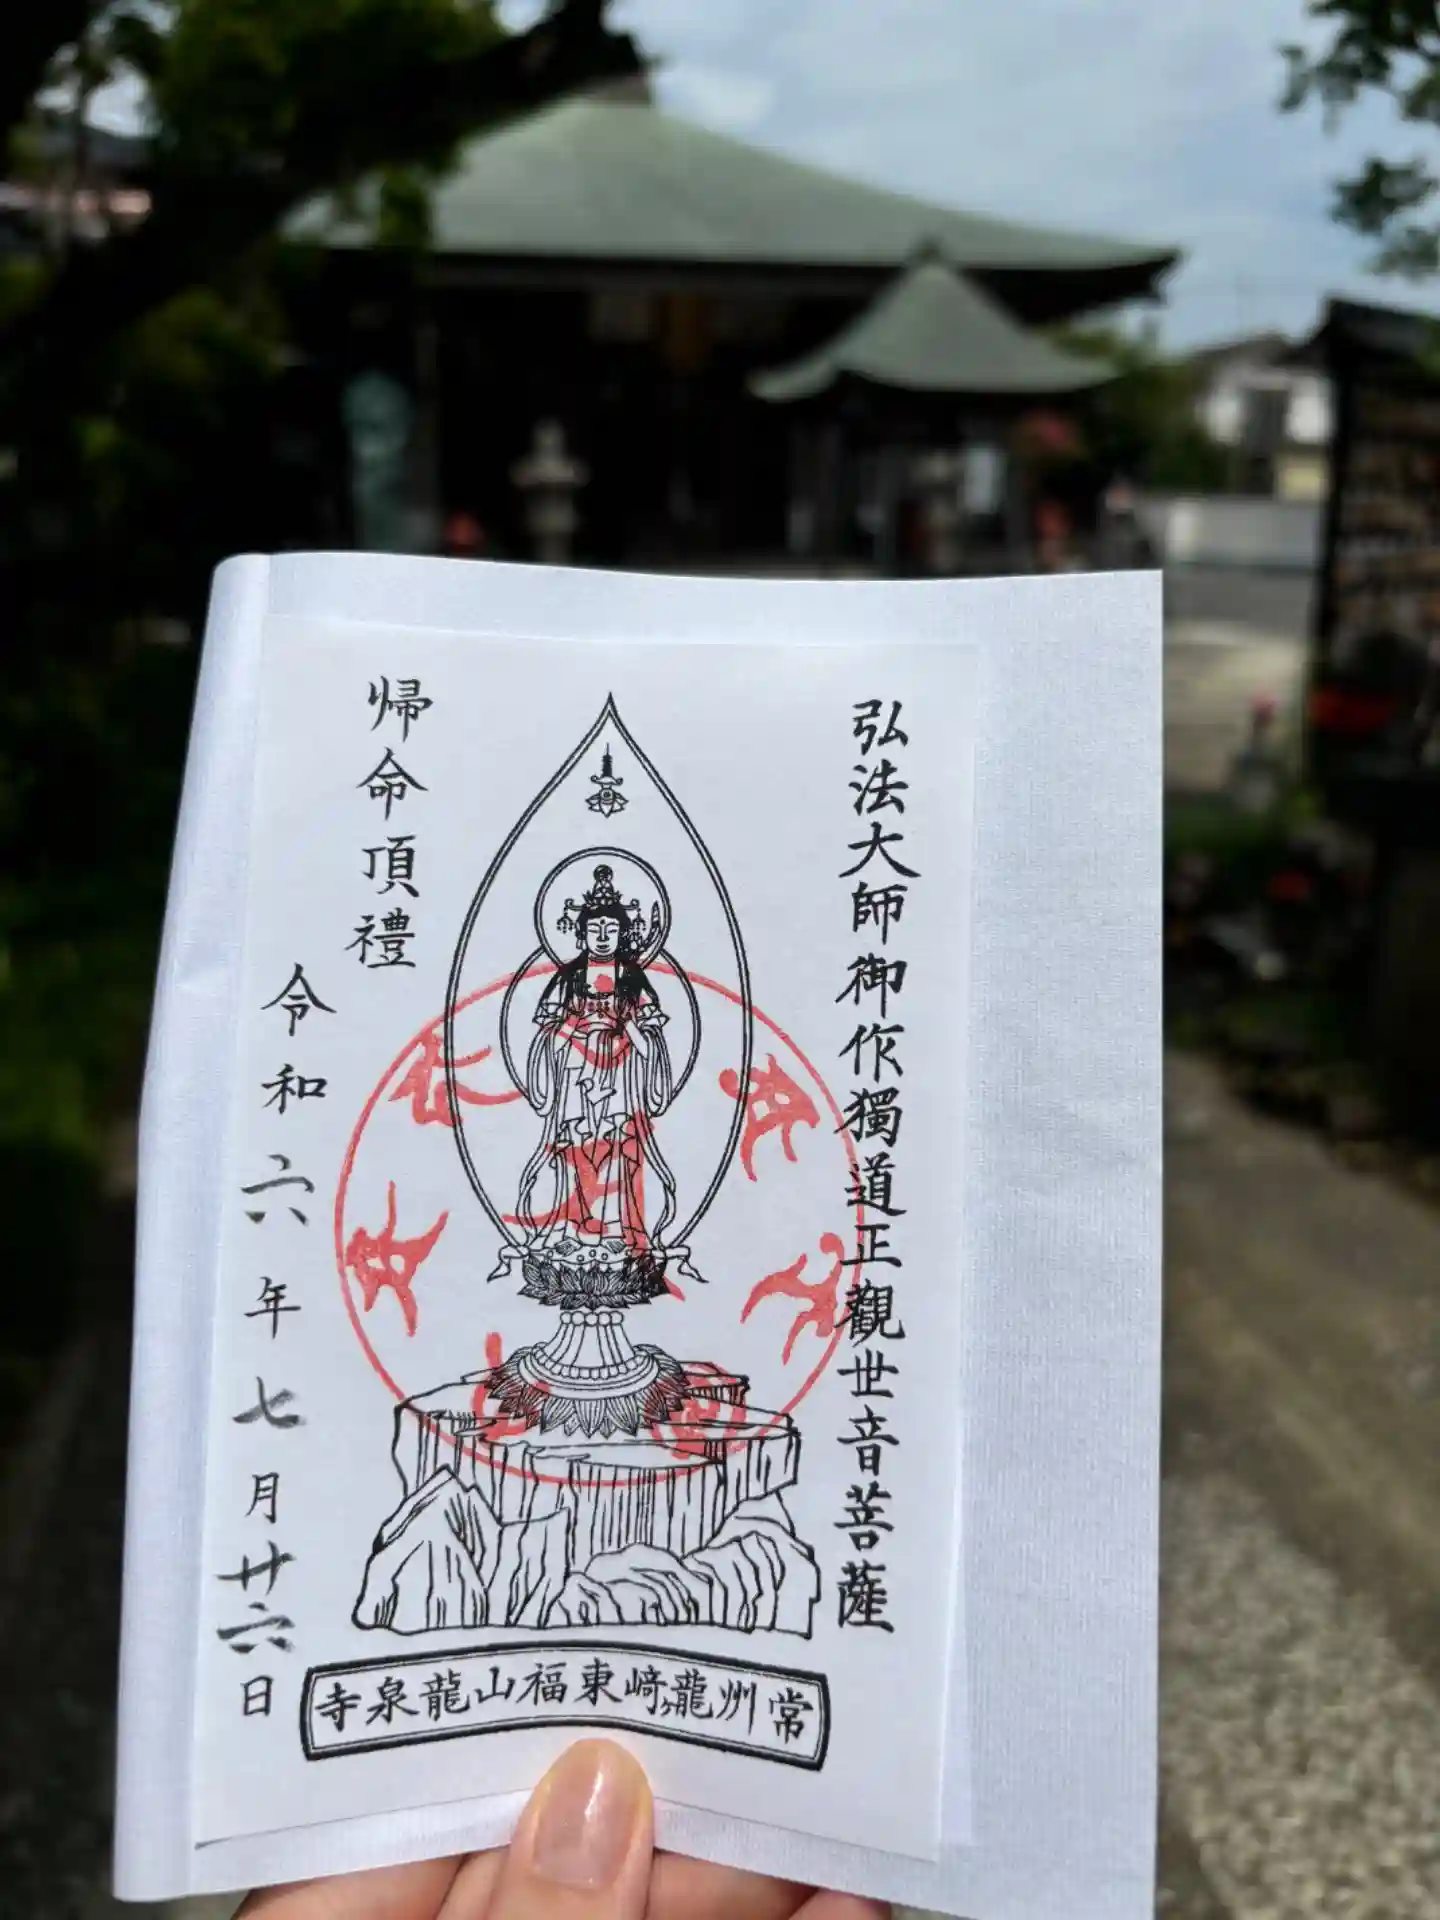 弘法大師御作獨道正觀世音菩薩
帰命頂禮
令和六年七月廿六日
常州龍ヶ﨑東福山龍泉寺